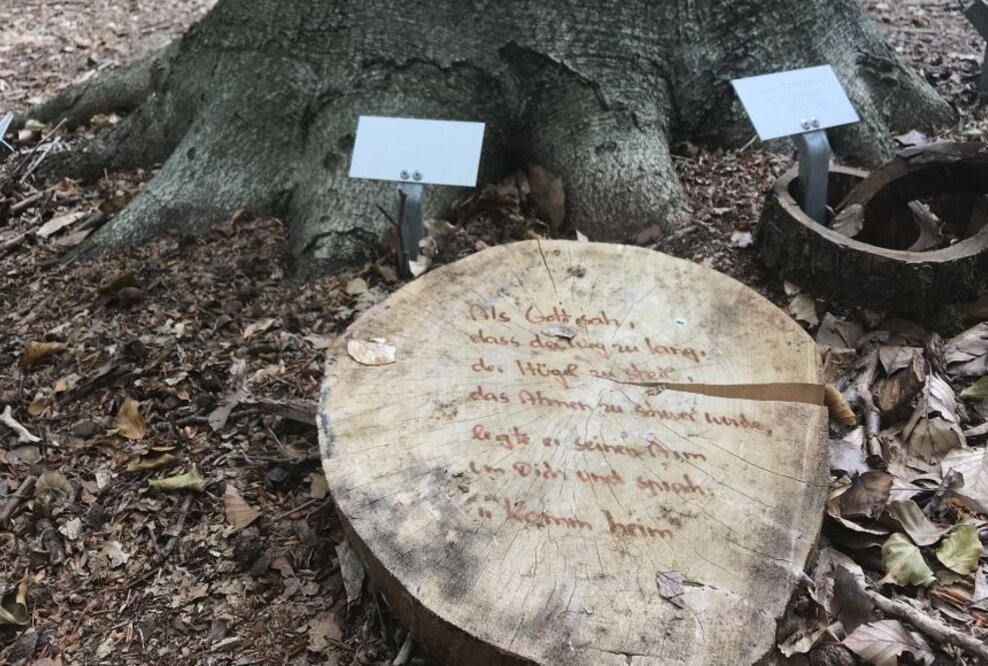 Als Gott sah,
dass der Weg zu lang,
der Hügel zu steil,
das Atmen zu schwer wurde,
legte er seinen Arm
um Dich und sprach:
"Komm heim"